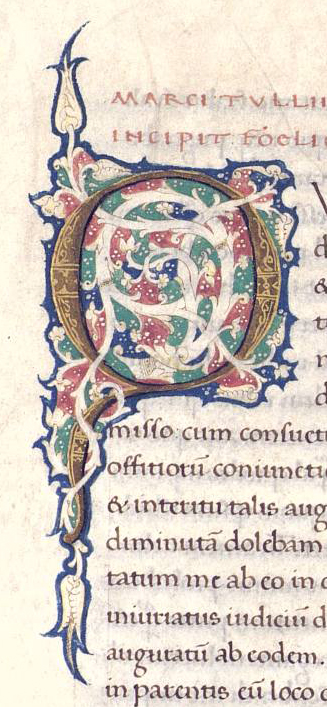 MARCI TVLLII
INCIPIT FOELIC
Q
d
&
t
n
d
misso: cum consuet
offitiorū coniuncti
& interitu talis aug
diminutā dolebam
tatum me ab eo in
iniuriatus iudiciū d
auguratū ab eodem.
in parentis eū loco